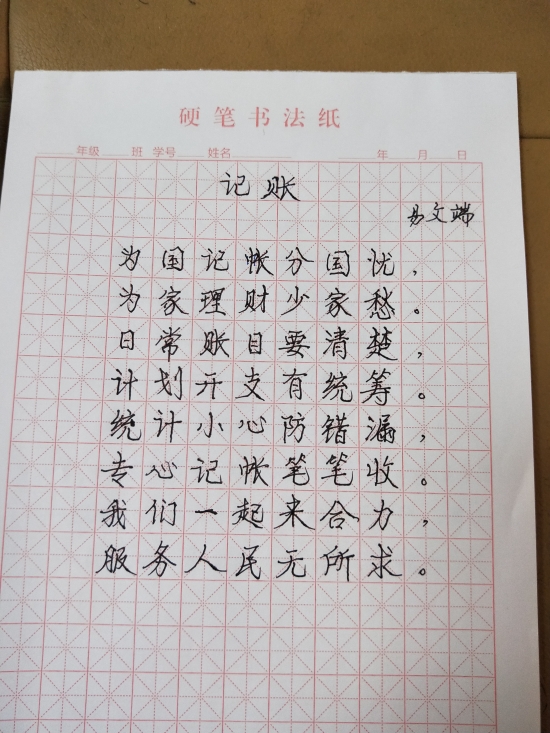 硬笔书法纸
年级 班 学号 姓名 年 月 日
记账
易文端
为国记帐分国忧，
为家理财少家愁。
日常账目要清楚，
计划开支有统筹。
统计小心防错漏，
专心记帐笔笔收。
我们一起来合力，
服务人民无所求。